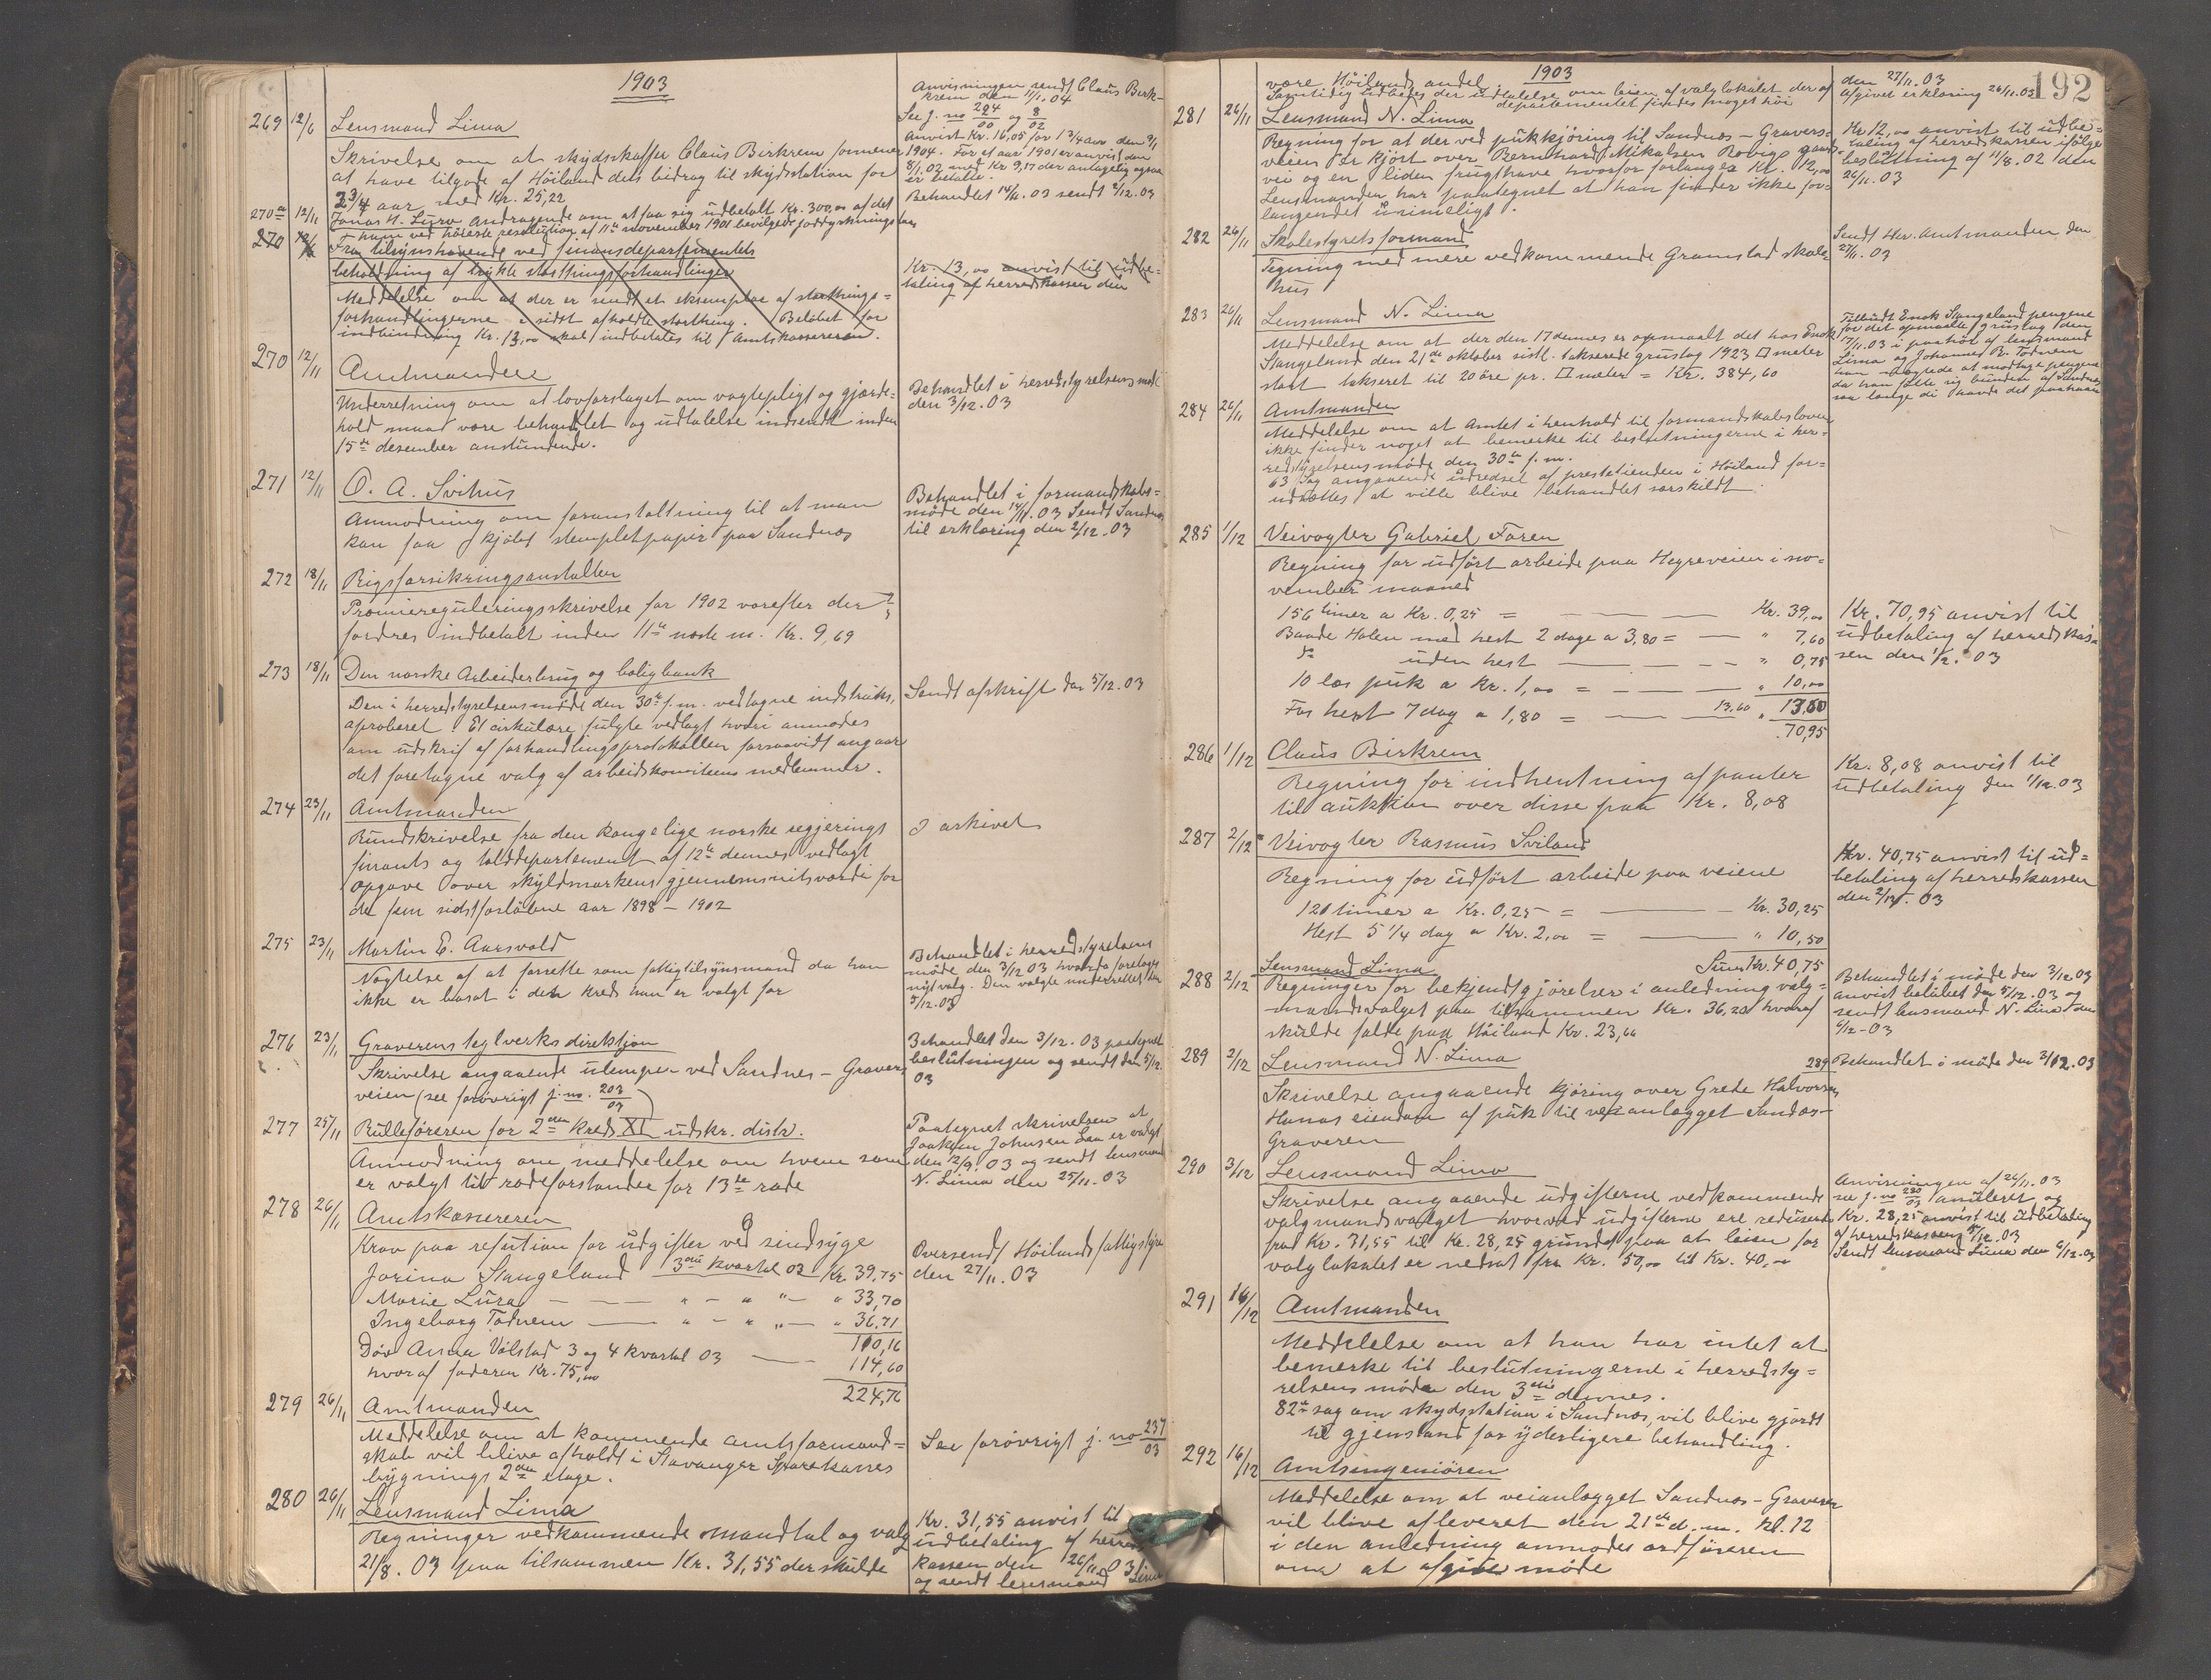 1903
269 12/11 Lensmand Lima
Skrivelse om at skydsskaffer Claus Birkrem formener
at have tilgode af Höiland dets bidrag til skydsstation for
2 3/4 aar med Kr. 25,22
Anvisningen sendt Claus Birk-
krem den 11/1.04
See j. no 294/00 og 8/02
Anvist Kr. 16,05 for 1 3/4 aar den 9/1
1904. For et aar 1901 er anvist den
8/1.02 med Kr 9,17 der antagelig ogsaa
er betalt.
270a 12/11 Jonas H. Lura andragende om at faa sig udbetalt Kr. 300,00 af det
ham ved höieste resolution af 11te november 1901 bevilgede
Behandlet 14/11.03 sendt 2/12.03
270 12/11 Fra tilsynshavende ved finansdepartementets
beholdning af trykte storthingsforhandlinger
Meddelelse om at der er sendt et eksemplar af storthings=
forhandlingerne i sidst afholdte storthing. Belöbet for
indbinding Kr. 13,00 skal indbetales til Amtskassereren.
Kr. 13,00 anvist til udbe=
taling af herredskassen den
270 12/11 Amtmanden
Underretning om at lovforslaget om vogtepligt og gjærde=
hold maa være behandlet og udtalelse indsendt inden
15de desember anstundende.
Behandlet i herredstyrelsens möde
den 3/12.03
271 12/11 O. A. Svihus
Anmodning om foranstaltning til at man
kan faa kjöbt stempletpapir paa Sandnæs
Behandlet i formandskabs=
möde den 14/11.03 Sendt Sandnæs
til erklæring den 2/12.03
272 18/11 Rigsforsikringsanstalten
Præmiereguleringsskrivelse for 1902 vorefter der
fordres indbetalt inden 11te næste m. Kr. 9,69
273 18/11 Den norske Arbeiderbrug og boligbank
Den i herredstyrelsens möde den 30te f.m. vedtagne instruks,
aproberet. Et cirkulære fulgte vedlagt hvori anmodes
om udskrif af forhandlingsprotokollen forsaavidt angaar
det foretagne valg af arbeidskomiteens medlemmer.
Sendt afskrift den 5/12.03
274 23/11 Amtmanden
Rundskrivelse fra den kongelige norske regjerings
finants og tolddepartement af 12te dennes vedlagt
opgave over skyldmarkens gjennemsnitsværdi for
de fem sidstforløbne aar 1898 – 1902
I arkivet
275 23/11 Martin E. Aarsvold
Nægtelse af at forrette som fattigtilsynsmand da han
ikke er bosat i den kreds han er valgt for
Behandlet i herredstyrelsens
möde den 3/12 03 hvorda foretages
nyt valg. Den valgte underrettet den
5/12.03
276 23/11 Graverens teglverks direktion
Skrivelse angaaende ulemper ved Sandnes – Gravers
veien (see forövrigt j. no. 203/03)
Behandlet den 3/12.03 paategnet
beslutningen og sendt den 5/12
03
277 25/11 Rulleföreren for 2den kreds XI udskr. distr.
Anmodning om meddelelse om hvem som
er valgt til rodeforstander for 13de rode
Paategnet skrivelsen at
Joakim Johnsen Lea er valgt
den 12/9.03 og sendt lensmand
N. Lima den 25/11.03
278 26/11 Amtskassereren
Krav paa refution for udgifter ved sindsyge
Jorina Stangeland 3die kvartal 03 Kr 39,75
Marie Lura — — " — " " — " 33,70
Ingeborg Todnem — " — " " — " 36.71
110,16
Döv Anna Völstad 3 og 4 kvartal 03 — 114,60
hvoraf faderen Kr. 75,00
224,76
Oversendt Höilands fattigstyre
den 27/11.03
279 26/11 Amtmanden
Meddelelse om at kommende amtsformand=
skab vil blive afholdt i Stavanger Sparekasses
bygnings 2den etage.
See forövrigt j. no 237/03
280 26/11 Lensmand Lima
Regninger vedkommende mandtal og valg
21/8.03 paa tilsammen Kr. 31,55 der skulde
Kr. 31,55 anvist til
udbetaling af herreds
kassen den 26/11.03
og sendt lensmand Lima
192
1903
være Höilands andel.
Samtidig udbedes der udtalelse om leien af valglokalet der af
departementet findes noget höi
den 27/11.03
afgivet erklæring 26/11.03
281 26/11 Lensmand N. Lima
Regning for at der ved pukkjöring til Sandnæs – Gravers-
veien er kjört over Bernhard Mikalsen Rovigs gaards
vei og en liden frugthave hvorfor forlanges Kr. 12,00
Lensmanden har paategnet at han finder ikke for-
langendet urimeligt.
Kr 12,00 anvist til udbe=
taling af herredskassen ifölge
beslutning af 11/8.02 den
26/11.03
282 26/11 Skolestyrets formand
Tegning med mere vedkommende Gramstad skole-
hus
Sendt Hr. Amtmanden den
27/11.03
283 26/11 Lensmand N. Lima
Meddelelse om at der den 17 dennes er opmaalt det hos Enok
Stangeland den 21de oktober sistl. takserede grustag 1923 □ meter
stort takseret til 20 öre pr. □ meter = Kr. 384,60
Tilbudt Enok Stangeland pengene
for det opmaalte grustag den
17/11.03 i paahör af lensmand
Lima og Johannes R. Todnem
han nægtede at modtage pengene
da han fölte sig bunden af Sandnes
saa længe de havde det paakaan
284 26/11 Amtmanden
Meddelelse om at Amtet i henhold til formandskabsloven
ikke finder noget at bemerke til beslutningerne i her-
redstyrelsens möde den 30te f.m.
63 Sag angaaende udredsel af prestetienden i Höiland for=
udsættes at ville blive behandlet særskildt.
285 1/12 Veivogter Gabriel Foren
Regning for udfört arbeide paa Hogreveien i no-
vember maaned
156 timer a Kr. 0,25 = — — Kr. 39,00
Baade Holen med hest 2 dage a 3,80 = — " 7,60
do uden hest — — — " 0,75
10 læs puk a Kr. 1,00 = — — " 10,00
For hest 7 dag a 1,80 = — 13.60 " 13.60
70,95
Kr. 70,95 anvist til
udbetaling af herredskas-
sen den 1/12.03
286 1/12 Claus Birkrem
Regning for indhentning af panter
til auktion over disse paa Kr. 8,08
Kr. 8,08 anvist til
udbetaling den 1/12.03
287 2/12 Veivogter Rasmus Sviland
Regning for udfört arbeide paa veiene
121 timer a Kr. 0,25 = — — Kr. 30,25
Hest 5 1/4 dag a Kr. 2,00 = — " 10,50
Sum Kr. 40,75
Kr. 40,75 anvist til ud=
betaling af herredskassen
den 2/12.03
288 2/12 Lensmand Lima
Regninger for bekjendtgjörelser i anledning valg-
mandsvalget paa tilsammen Kr. 36,20 hvoraf
skulde falde paa Höiland Kr. 23,60
Behandlet i möde den 3/12.03
anvist belöbet den 5/12.03 og
sendt lensmand N. Lima den
6/12-03
289 2/12 Lensmand N. Lima
Skrivelse angaaende kjöring over Grede Halvorsen
Hanas eiendom af puk til veianlægget Sandnes-
Graveren
289 Behandlet i möde den 3/12.03
290 3/12 Lensmand Lima
Skrivelse angaaende udgifterne vedkommende
valgmandsvalget hvorved udgifterne ere reduserte
fra Kr. 31,55 til Kr. 28,25 grundet paa at leien for
valglokalet er nedsat fra Kr. 50,00 til Kr. 40,00
Anvisningen af 26/11.03
see j. no 280/03 anuleret og
Kr. 28,25 anvist til udbetaling
af herredskassen 5/12.03
Sendt lensmand Lima den 6/12.03
291 16/12 Amtmanden
Meddelelse om at han har intet at
bemerke til beslutningerne i herredsty=
relsens möde den 3die dennes.
82de sag om skydsstation i Sandnæs, vil blive gjordt
til gjenstand for yderligere behandling.
292 16/12 Amtsingeniören
Meddelelse om at veianlægget Sandnæs – Graveren
vil blive afleveret den 21de d.m. kl. 12
i den anledning anmodes ordföreren
om at afgive möde